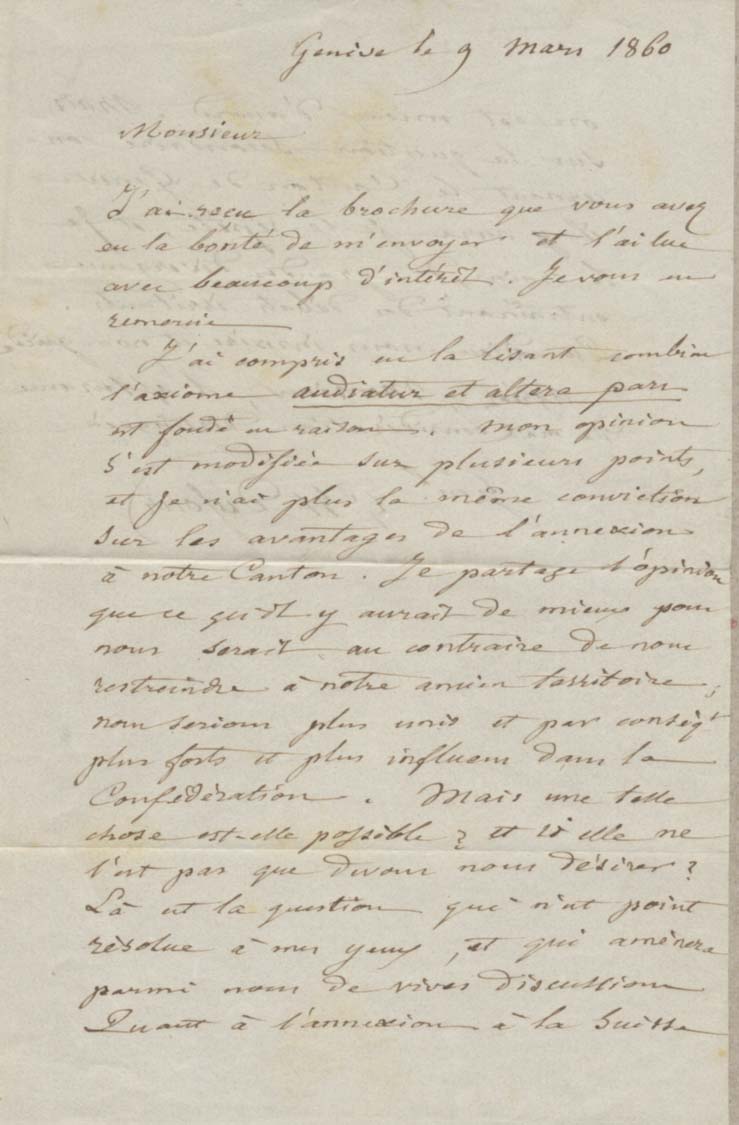 Genève le 9 Mars 1860
Monsieur
J'ai reçu la brochure que vous avez
eu la bonté de m'envoyer et l'ai lue
avec beaucoup d'intérêt. Je vous en
remercie
J'ai compris en la lisant combien
l'axiome audiatur et altera pars
est fondé en raison. Mon opinion
s'est modifiée sur plusieurs points,
et je n'ai plus la même conviction
sur les avantages de l'annexion
à notre Canton. Je partage l'opinion
que ce qu'il y aurait de mieux pour
nous serait au contraire de nous
restreindre à notre ancien territoire;
nous serions plus unis et par conséqt
plus forts et plus influens dans la
Confédération. Mais une telle
chose est-elle possible? et si elle ne
l'est pas que devons nous désirer?
Là est la question qui n'est point
résolue à mes yeux, et qui amènera
parmi nous de vives discussions
Quant à l'annexion à la Suisse